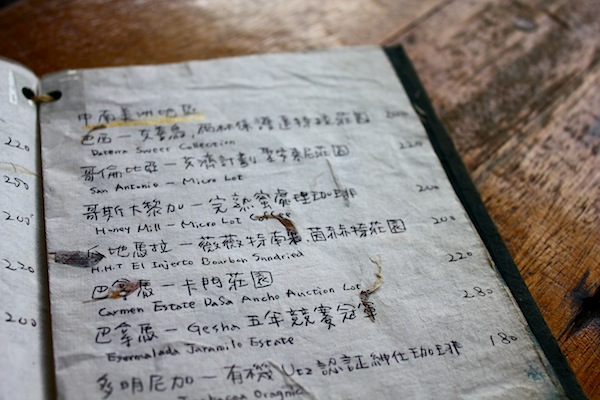 220
280
200
220
200
中南美洲地區
巴西 — 女喬島，雨林保證達特拉莊園 200
Daterra Sweet Collection
哥倫比亞 — 女濟計劃 聖安東尼莊園 220
San Antonio - Micro Lot
哥斯大黎加 — 完熟蜜處理咖啡 220
Honey Mill - Micro Lot Coffee
地馬拉 — 薇薇特南果，茵赫特莊園 200
H.H.T El Injerto Bourbon Sundried
巴拿馬 — 卡門莊園 220
Carmen Estate DaSa Ancho Auction Lot
巴拿馬 — Gesha 五年競賽冠軍 280
Esmeralada Jaramilo Estate
多明尼加 — 有機 Utz 認証紳仕咖啡 180
Oragnic